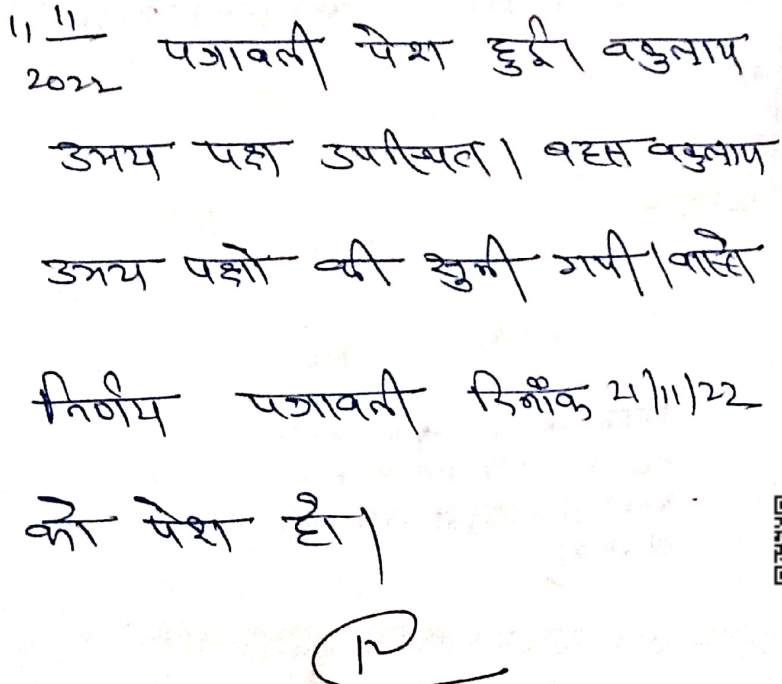 11/11/2022 पत्रावली पेश हुई। वकुलाय
उभय पक्ष उपस्थित। बहस वकुलाय
उभय पक्षो की सुनी गयी। वास्ते
निर्णय पत्रावली दिनाँक 21/11/22
को पेश हो।